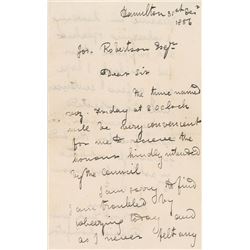 Hamilton 31st Decr
1886
Jos. Robertson Esqr
Dear Sir
The time named
viz Friday at 8 oclock
will be very convenient
for me to receive the
honour kindly intended
by the council
I am sorry to find
I am troubled by
wheezing today and
as I never felt any